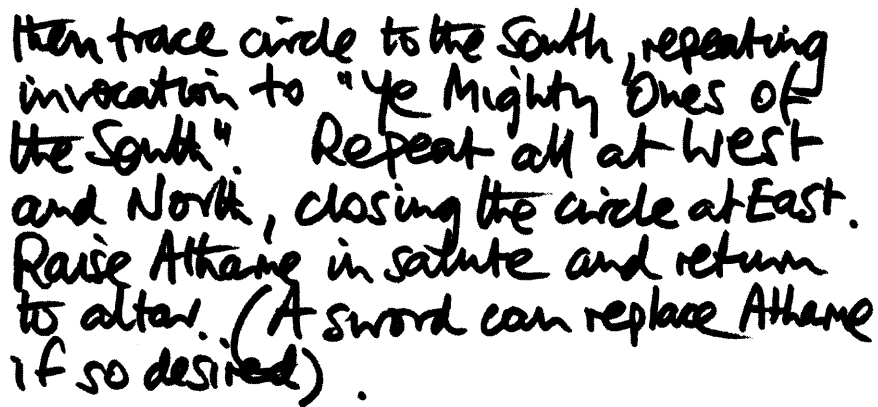 then trace circle to the South, repeating
invocation to "Ye Mighty Ones of
the South". Repeat all at West
and North, closing the circle at East.
Raise Athame in salute and return
to altar. (A sword can replace Athame
if so desired).